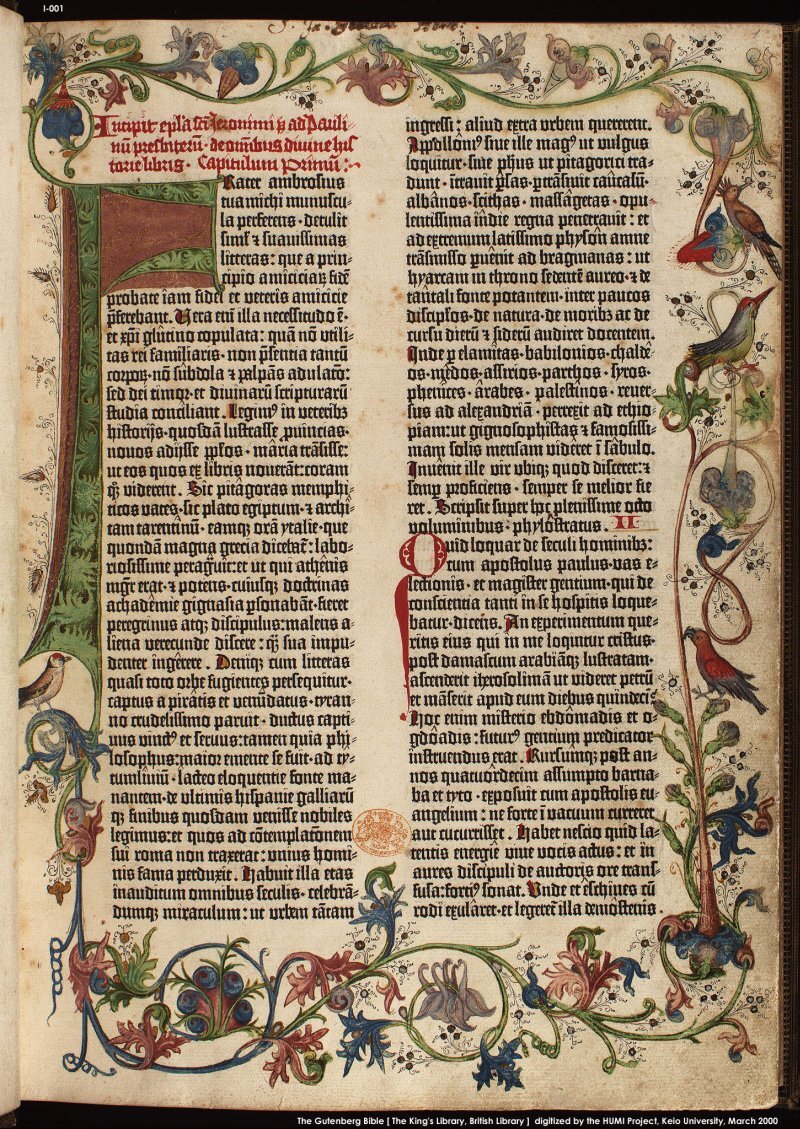 I-001
Incipit epl̄a sc̄i Jeronimi p̄b ad Pauli⸗
nū presbiterū · de om̄ibus diuine his⸗
torie libris · Capitulum Primū :·
Frater ambrosius
tua michi munuscu⸗
la perferens · detulit
siml' ⁊ suauissimas
litteras : que a prin⸗
cipio amiciciaꝝ fidē
probate iam fidei et veteris amicicie
p̄ferebant. Vera em̄ illa necessitudo ē ·
et xp̄i glutino copulata : quā nō vtili⸗
tas rei familiaris · non p̄sentia tantū
corpoꝝ · nō subdola ⁊ palpās adulatō :
sed dei timor · et diuinarū scripturarū
studia conciliant. Legimꝰ in veteribꝫ
historijs · quosdā lustrasse ꝓuincias ·
nouos adijsse p̄p̄los · maria trāsisse :
ut eos quos ex libris nouerāt : coram
qꝫ viderent. Sic pitagoras memphi⸗
ticos vates · sic plato egiptum · ⁊ archi⸗
tam tarentinū · eamqꝫ orā ytalie · que
quondā magna grecia dicebat̄ : labo⸗
riosissime peragᷓuit : et ut qui athenis
mgr̄ erat · ⁊ potens · cuiusqꝫ doctrinas
achademie gignasia ꝑsonabāt · fieret
peregrinus atqꝫ discipulus : malens a⸗
liena verecunde discere : qꝫ sua impu⸗
denter ingerere. Deniqꝫ cum litteras
quasi toto orbe fugientes persequitur ·
captus a piratis et venūdatus · tyran⸗
no crudelissimo paruit · ductus capti⸗
uus vinctꝰ et seruus : tamen quia phi⸗
losophus : maior emente se fuit · ad ty⸗
tumliuiū · lacteo eloquentie fonte ma⸗
nantem · de vltimis hispanie galliarū
qꝫ finibus quosdam venisse nobiles
legimus : et quos ad cōtemplatōnem
sui roma non traxerat : vnius homi⸗
nis fama perduxit. Habuit illa etas
inauditum omnibus seculis · celebrā⸗
dumqꝫ miraculum : ut vrbem tātam
ingressi : aliud extra vrbem quererent.
Apolloniꝰ siue ille magꝰ ut vulgus
loquitur · siue ph̄us ut pitagorici tra⸗
dunt · ītrauit p̄sas · ꝑtrāsiuit caucasū ·
albanos · scithas · massagetas · opu⸗
lentissima indie regna penetrauit : et
ad extremum latissimo physon amne
trāsmisso ꝑuenit ad bragmanas : ut
hyarcam in throno sedentē aureo · ⁊ de
tantali fonte potantem · inter paucos
discip̄los · de natura · de moribꝫ ac de
cursu dierū ⁊ siderū audiret docentem.
Inde ꝑ elamitas · babilonios · chalde⸗
os · medos · assirios · parthos · syros ·
phenices · arabes · palestinos · reuer⸗
sus ad alexandriā · perrexit ad ethio⸗
piam : ut gignosophistas ⁊ famosissi⸗
mam solis mensam videret ī sabulo.
Inuenit ille vir vbiqꝫ quod disceret : ⁊
semꝑ proficiens · semper se melior fie⸗
ret. Scripsit super hoc plenissime octo
voluminibus · phylostratus. II
Quid loquar de seculi hominibꝫ :
cum apostolus paulus · vas e⸗
lectionis · et magister gentium · qui de
conscientia tanti in se hospitis loque⸗
batur · dicens. An experimentum que⸗
ritis eius qui in me loquitur cristus ·
post damascum arabiāqꝫ lustratam ·
ascenderit iherosolimā ut videret petrū
et māserit apud eum diebus quindeci.
Hoc enim misterio ebdomadis et o⸗
gdoadis : futurꝰ gentium predicator
instruendus erat. Rursumqꝫ post an⸗
nos quatuordecim assumpto barna⸗
ba et tyto · exposuit cum apostolis eu⸗
angelium : ne forte ī vacuum curreret
aut cucurrisset. Habet nescio quid la⸗
tentis energie viue vocis actus : et in
aures discipuli de auctoris ore trans⸗
fusa : fortiꝰ sonat. Vnde et eschines cū
rodi exularet · et legeret̄ illa demostenis
The Gutenberg Bible [ The King's Library, British Library ] digitized by the HUMI Project, Keio University, March 2000